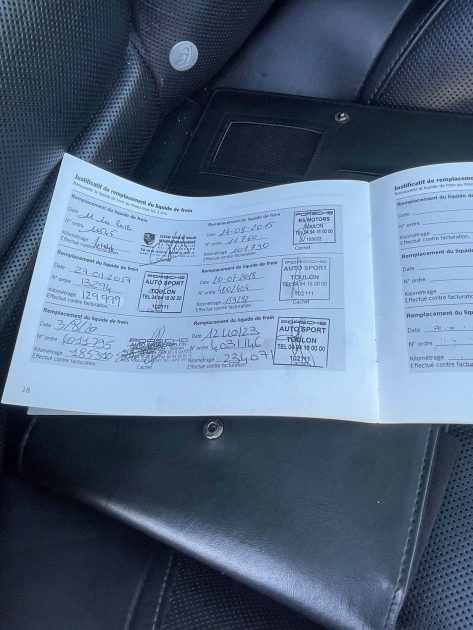 Justificatif de remplacement du liquide de frein
Renouveler le liquide de frein au moins tous les 2 ans
Remplacement du liquide de frein
Date
N° ordre
Kilométrage
Effectué contre facturation.
Remplacement du liquide de frein
Date 14-08-2015
N° ordre 11760
Kilométrage 101730
Effectué contre facturation.
Cachet
PORSCHE
RS MOTORS
TOULON
TEL 04 94 16 00 00
Remplacement du liquide de frein
Date 23.01.2017
N° ordre 13294
Kilométrage 129979
Effectué contre facturation.
PORSCHE
AUTO SPORT
TOULON
TEL 04 94 16 00 00
102111
Remplacement du liquide de frein
Date
N° ordre
Kilométrage
Effectué contre facturation.
PORSCHE
AUTO SPORT
TOULON
TEL 04 94 16 00 00
102111
Remplacement du liquide de frein
Date 3/8/20
N° ordre 4011795
Kilométrage
Effectué contre facturation.
Cachet
Remplacement du liquide de frein
Date 12/10/23
N° ordre 4031146
Kilométrage 234071
Effectué contre facturation.
Cachet
PORSCHE
AUTO SPORT
TOULON
TEL 04 94 16 00 00
102111
18
Justificatif de remplacement
Renouveler le liquide de frein au
Remplacement du
Date
N° ordre
Kilométrage
Effectué contre
Remplacement
Date
N° ordre
Kilométrage
Effectué contre
Remplacement
Date
N° ordre
Kilométrage
Effectué contre